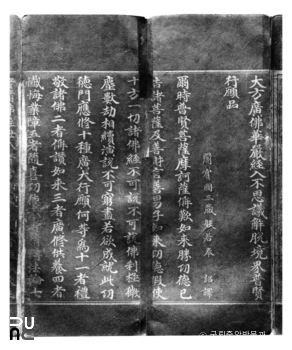 大方廣佛華嚴經入不思議解脫境界普賢
行願品
罽賓國三藏般若奉 詔譯
爾時普賢菩薩摩訶薩稱歎如來勝功德已
告諸菩薩及善財言善男子如來功德假使
十方一切諸佛經不可說不可說佛刹極微
塵數劫相續演說不可窮盡若欲成就此功
德門應修十種廣大行願何等爲十一者禮
敬諸佛二者稱讚如來三者廣修供養四者
懺悔業障五者隨喜功德